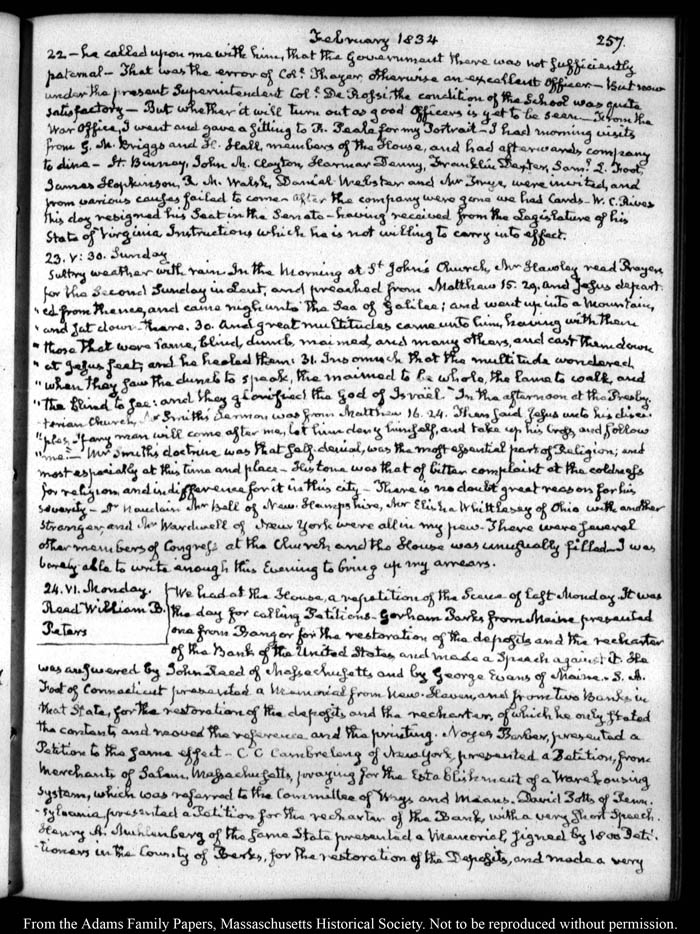 February 1834
257.
22 – he called upon me with him, that the Government there was not sufficiently
paternal – That was the error of Col.l Thayer, otherwise an excellent Officer – But now
under the present Superintendent Col.l De Russi, the condition of the School was quite
satisfactory – But whether it will turn out as good Officers is yet to be seen – From the
War Office, I went and gave a sitting to R. Peale for my Portrait – I had morning visits
from G. N. Briggs and H. Hall, members of the House, and had afterwards company
to dine – H. Binney, John M. Clayton, Harmar Denny, Franklin Dexter, Sam.l L. Foot,
James Hopkinson, R. M. Walsh, Daniel Webster and Mr Frye, were invited, and
from various causes failed to come – After the company were gone we had Cards – W. C. Rives
this day resigned his Seat in the Senate – having received from the Legislature of his
State of Virginia Instructions which he is not willing to carry into effect.
23. V: 30. Sunday
Sultry weather with rain In the Morning at St John's Church, Mr Hawley read Prayers
for the Second Sunday in Lent, and preached from Matthew 15. 29. and Jesus depart-
"ed from thence, and came nigh unto the Sea of Galilee; and went up into a Mountain,
"and sat down there. 30. And great multitudes came unto him, having with them
"those that were lame, blind, dumb, maimed, and many others, and cast them down
"at Jesus feet; and he healed them: 31. Insomuch that the multitude wondered,
"when they saw the dumb to speak, the maimed to be whole, the lame to walk, and
"the blind to see: and they glorified the God of Israel" In the afternoon at the Presby-
-terian Church, Mr Smith's Sermon was from Matthew 16. 24. Then said Jesus unto his disci-
"ples, If any man will come after me, let him deny himself, and take up his Cross and follow
"me." – Mr Smith's doctrine was that Self-denial, was the most essential part of Religion; and
most especially at this time and place – His tone was that of bitter complaint at the coldness
for religion, and indifference for it in this city – There is no doubt great reason for his
severity – Mr Bell of New-Hampshire, Mr Elisha Whittlesey of Ohio with another
Stranger, and Mr Wardwell of New York were all in my pew – There were several
other members of Congress at the Church and the House was unusually filled – I was
barely able to write enough this Evening to bring up my arrears.
24. VI. Monday.
Read William B.
Peters
We had at the House, a repetition of the Scene of last Monday. It was
the day for calling Petitions – Gorham Parks from Maine presented
one from Bangor for the restoration of the deposits and the recharter
of the Bank of the United States, and made a Speech against it. He
was answered by John Reed of Massachusetts and by George Evans of Maine – S. A.
Foot of Connecticut presented a Memorial from New-Haven, and from two Banks in
that State, for the restoration of the deposits and the recharter, of which he only stated
the contents, and moved the reference and the printing. Noyes Barber, presented a
Petition to the same effect – C. C Cambreleng of New York, presented a Petition, from
Merchants of Salem, Massachusetts, praying for the Establishment of a Warehousing
System, which was referred to the Committee of Ways and Means. David Potts of Penn-
-sylvania presented a Petition for the recharter of the Bank, with a very short Speech.
Henry A. Muhlenberg of the same State presented a Memorial, signed by 1800 Peti-
-tioners in the County of Berks, for the restoration of the Deposits, and made a very
From the Adams Family Papers, Massachusetts Historical Society. Not to be reproduced without permission.